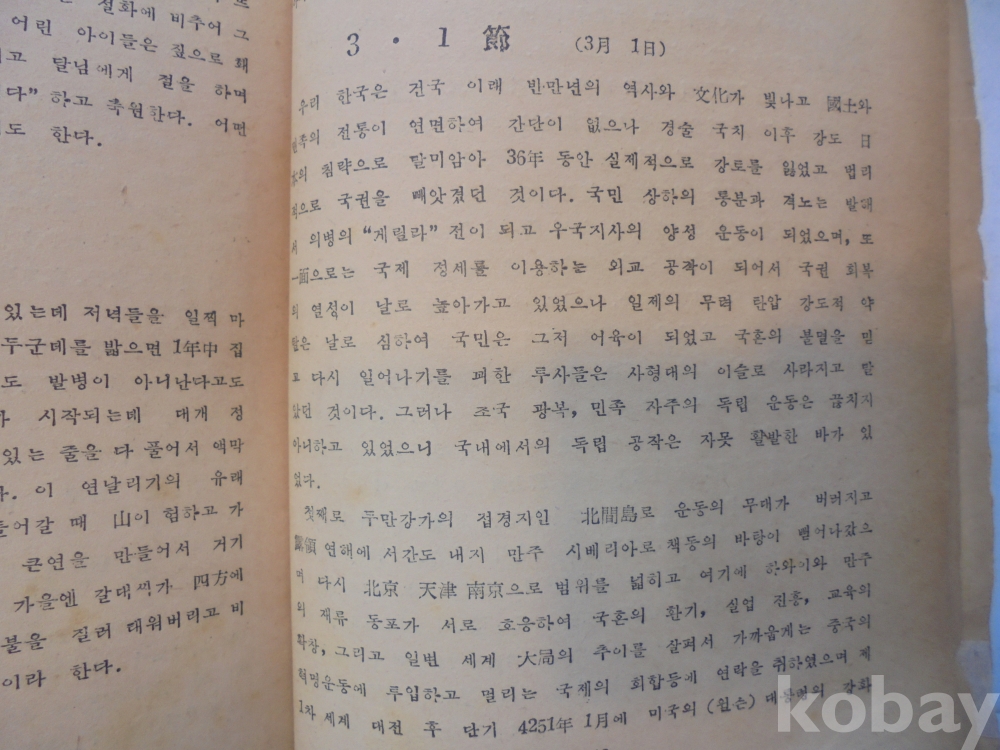 설화에 비추어 그
어린 아이들은 짚으로 홰
고 달님에게 절을 하며
다” 하고 축원한다. 어떤
도 한다.
있는데 저녁들을 일찍 마
두군데를 밟으면 1年中 집
도 발병이 아니난다고도
시작되는데 대개 정
있는 줄을 다 풀어서 액막
다. 이 연날리기의 유래
들어갈 때 山이 험하고 가
큰연을 만들어서 거기
가을엔 갈대싹가 四方에
불을 질러 태워버리고 비
이라 한다.
3 · 1 節 (3月 1日)
우리 한국은 건국 이래 반만년의 역사와 文化가 빛나고 國土와
민족의 전통이 연면하여 간단이 없으나 경술 국치 이후 강도 日
本의 침략으로 말미암아 36年 동안 실제적으로 강토를 잃었고 법리
적으로 국권을 빼앗겼던 것이다. 국민 상하의 통분과 격노는 발해
서 의병의 “게릴라” 전이 되고 우국지사의 양성 운동이 되었으며, 또
一面으로는 국제 정세를 이용하는 외교 공작이 되어서 국권 회복
의 열성이 날로 높아가고 있었으나 일제의 무력 탄압 강도적 약
탈은 날로 심하여 국민은 그저 어육이 되었고 국혼의 불멸을 믿
고 다시 일어나기를 꾀한 투사들은 사형대의 이슬로 사라지고 말
았던 것이다. 그러나 조국 광복, 민족 자주의 독립 운동은 끊치지
아니하고 있었으니 국내에서의 독립 공작은 자못 활발한 바가 있
었다.
첫째로 두만강가의 접경지인 北間島로 운동의 무대가 버러지고
露領 연해에 서간도 내지 만주 시베리아로 책동의 바탕이 뻗어나갔으
며 다시 北京 天津 南京으로 범위를 넓히고 여기에 하와이와 만주
의 재류 동포가 서로 호응하여 국혼의 환기, 실업 진흥, 교육의
확창, 그리고 일변 세계 大局의 추이를 살펴서 가까웁게는 중국의
혁명운동에 투입하고 멀리는 국제의 회합등에 연락을 취하였으며 제
1차 세계 대전 후 단기 4251年 1月에 미국의 (윌슨) 대통령의 강화
kobay